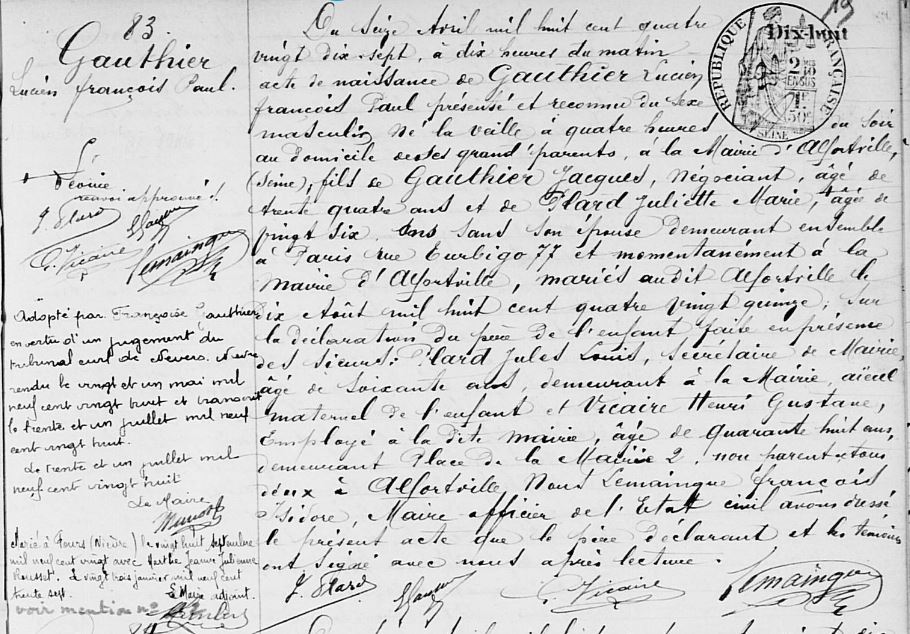 83
Gauthier
Lucien françois Paul.
Léonie
renvoi approuvé !.
J. Plard
G. Vicaire Lemaingue
Adopté par Françoise Gauthier
en vertu d'un jugement du
tribunal civil de Nevers. Nièvre
rendu le vingt et un mai mil
neuf cent vingt huit et transcrit
le trente et un juillet mil neuf
cent vingt huit.
Le trente et un juillet mil
neuf cent vingt huit
Le Maire
Marié à Fours (Nièvre) le vingt huit septembre
mil neuf cent vingt avec Marthe Jeanne Julienne
Rousset. Le vingt trois janvier mil neuf cent
trente sept. Le Maire adjoint.
voir mention no
19
Dix-huit
RÉPUBLIQUE FRANÇAISE
SEINE
Du Seize Avril mil huit cent quatre
vingt dix-sept, à dix heures du matin
acte de naissance de Gauthier Lucien
françois Paul présenté et reconnu du sexe
masculin Né la veille à quatre heures du soir
au domicile de ses grand'parents, à la Mairie d'Alfortville,
(Seine), fils de Gauthier Jacques, Négociant, âgé de
trente quatre ans et de Plard Juliette Marie, âgée de
vingt six ans sans son épouse demeurant ensemble
à Paris rue Turbigo 77 et momentanément à la
Mairie d'Alfortville, mariés audit Alfortville le
dix Août mil huit cent quatre vingt quinze; Sur
la déclaration du père de l'enfant faite en présence
des sieurs: Plard Jules Louis, Secrétaire de Mairie,
âgé de soixante ans, demeurant à la Mairie, aïeul
maternel de l'enfant et Vicaire Henri Gustave,
Employé à la dite mairie, âgé de quarante huit ans,
demeurant Place de la Mairie 2, non parent, tous
deux à Alfortville, Nous Lemaingue françois
Isidore, Maire officier de l'Etat civil avons dressé
le présent acte que le père déclarant et les témoins
ont signé avec nous après lecture.
J. Plard G. Vicaire Lemaingue